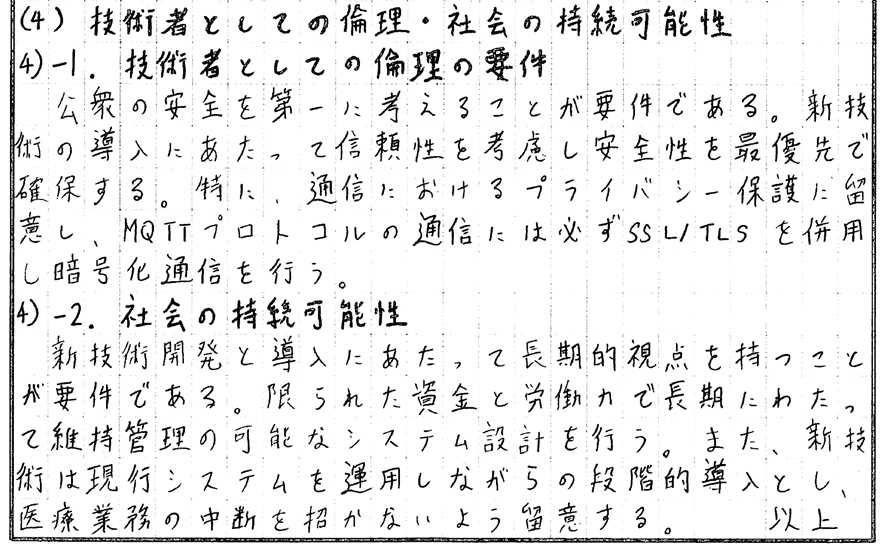 (4) 技術者としての倫理・社会の持続可能性
4)-1. 技術者としての倫理の要件
公衆の安全を第一に考えることが要件である。新技
術の導入にあたって信頼性を考慮し安全性を最優先で
確保する。特に、通信におけるプライバシー保護に留
意し、MQTTプロトコルの通信には必ずSSL/TLSを併用
し暗号化通信を行う。
4)-2. 社会の持続可能性
新技術開発と導入にあたって長期的視点を持つこと
が要件である。限られた資金と労働力で長期にわたっ
て維持管理の可能なシステム設計を行う。また、新技
術は現行システムを運用しながらの段階的導入とし、
医療業務の中断を招かないよう留意する。 以上